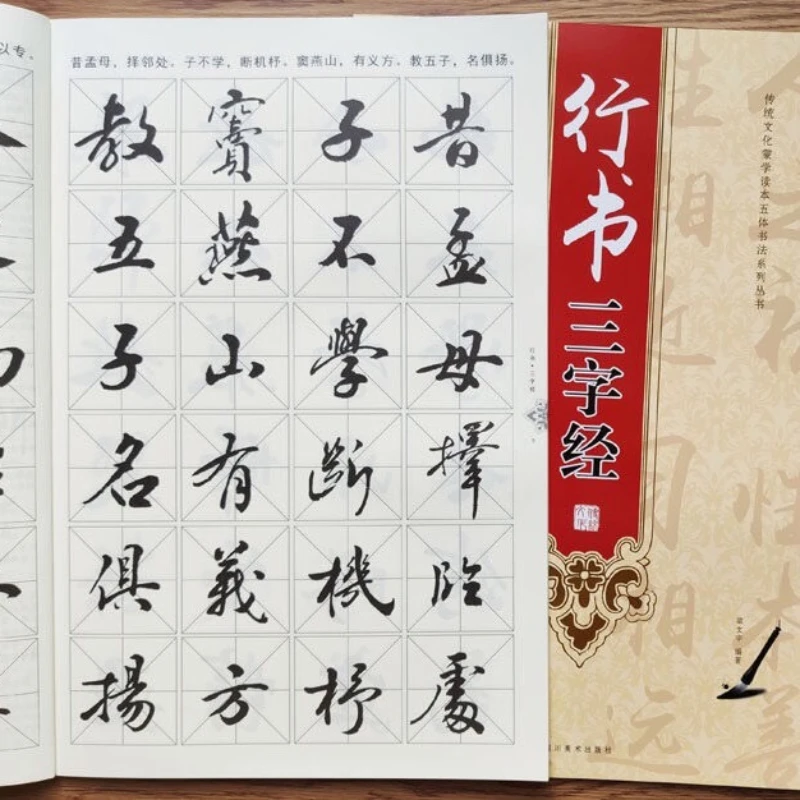 以专。
昔孟母，择邻处。子不学，断机杼。窦燕山，有义方。教五子，名俱扬。
昔孟母擇鄰處
子不學斷機杼
竇燕山有義方
教五子名俱揚
行书·三字经
行书三字经
传统文化蒙学读本五体书法系列丛书
人之初性本善
性相近习相远
编著
川美术出版社